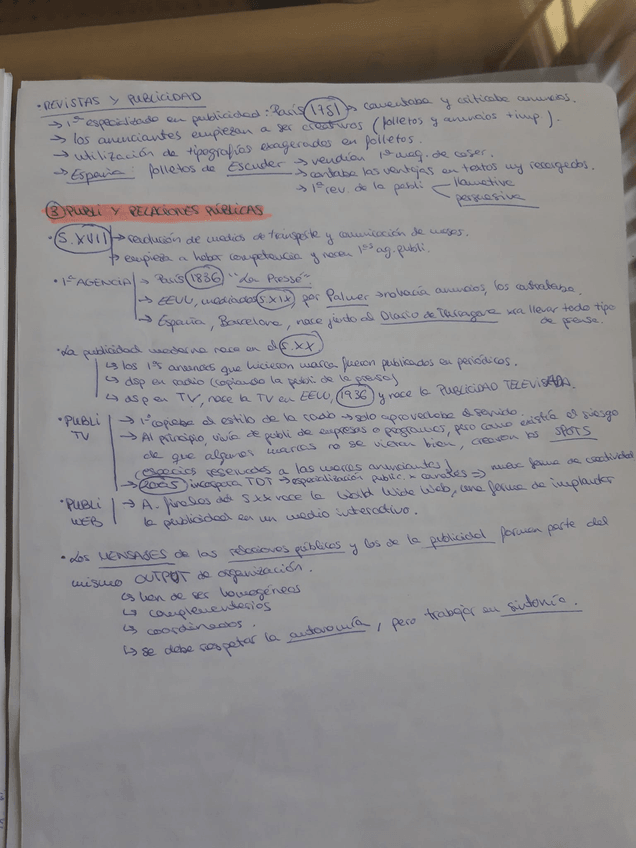 · REVISTAS Y PUBLICIDAD
→ 1ª especializado en publicidad: París 1751 → comentaba y criticaba anuncios.
→ los anunciantes empiezan a ser creativos (folletos y anuncios + imp).
→ utilización de tipografías exageradas en folletos.
→ España: folletos de Escuder → vendían 1ª maq. de coser.
→ contaba las ventajas en textos muy recargados.
→ 1ª rev. de la publi — llamativa
persuasiva
③ PUBLI Y RELACIONES PÚBLICAS
· S. XVII → revolución de medios de transporte y comunicación de masas.
→ empieza a haber competencia y nacen 1as ag. publi.
· 1ª AGENCIA → París 1836 "La Presse".
→ EEUU, mediados S.XIX por Palmer → no hacía anuncios, los contrataba.
→ España, Barcelona, nace junto al Diario de Tarragona xra llevar todo tipo
de prensa.
· La publicidad moderna nace en el S.XX
↳ los 1os anuncios que hicieron marca fueron publicados en periódicos.
↳ dsp en radio (copiando la publi de la prensa)
↳ dsp en TV, nace la TV en EEUU, 1936 y nace la PUBLICIDAD TELEVISADA.
· PUBLI TV → 1º copiaba el estilo de la radio → solo aprovechaba el sonido.
→ Al principio, vivía de publi de empresas o programas, pero como existía el riesgo
de que algunas marcas no se vieran bien, crearon los SPOTS
(espacios reservados a las marcas anunciantes)
→ 2005 incorpora TDT → especialización public. x canales ⇒ nueva forma de creatividad
· PUBLI WEB → A finales del S.XX nace la World Wide Web, una forma de implantar
la publicidad en un medio interactivo.
· Los MENSAJES de las relaciones públicas y los de la publicidad forman parte del
mismo OUTPUT de organización.
↳ han de ser homogéneos
↳ complementarios
↳ coordinados.
↳ se debe respetar la autonomía, pero trabajar en sintonía.